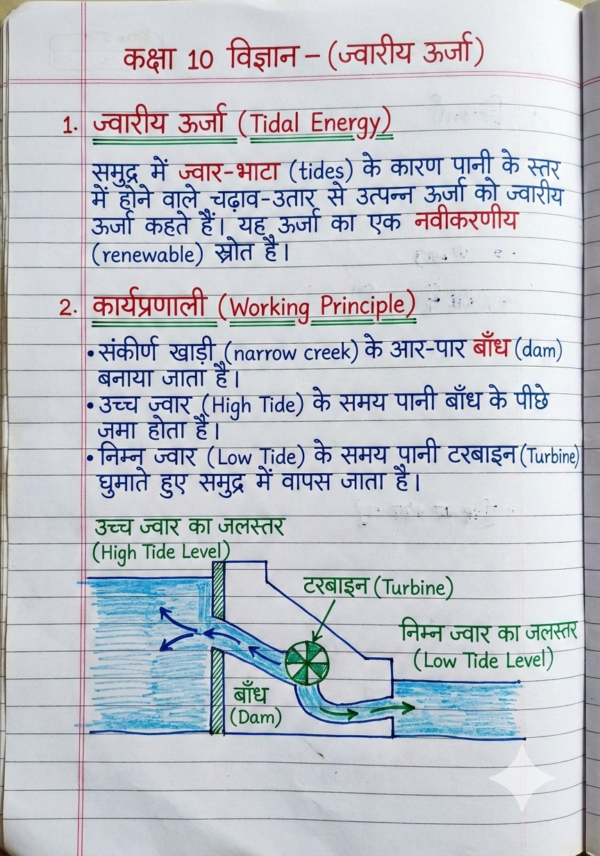 कक्षा 10 विज्ञान – (ज्वारीय ऊर्जा)
1. ज्वारीय ऊर्जा (Tidal Energy)
समुद्र में ज्वार-भाटा (tides) के कारण पानी के स्तर
में होने वाले चढ़ाव-उतार से उत्पन्न ऊर्जा को ज्वारीय
ऊर्जा कहते हैं। यह ऊर्जा का एक नवीकरणीय
(renewable) स्रोत है।
2. कार्यप्रणाली (Working Principle)
• संकीर्ण खाड़ी (narrow creek) के आर-पार बाँध (dam)
बनाया जाता है।
• उच्च ज्वार (High Tide) के समय पानी बाँध के पीछे
जमा होता है।
• निम्न ज्वार (Low Tide) के समय पानी टरबाइन (Turbine)
घुमाते हुए समुद्र में वापस जाता है।
उच्च ज्वार का जलस्तर
(High Tide Level)
टरबाइन (Turbine)
निम्न ज्वार का जलस्तर
(Low Tide Level)
बाँध
(Dam)